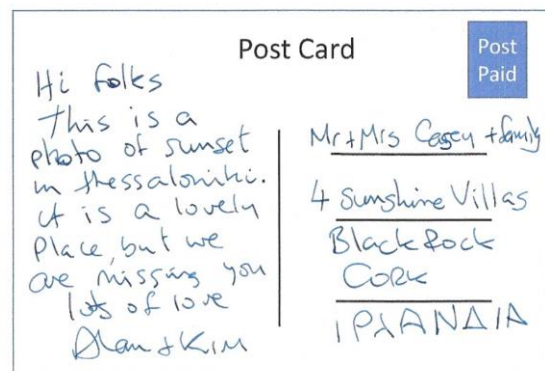 Post Card
Post
Paid
Hi folks
This is a
photo of sunset
in Thessaloniki.
it is a lovely
place, but we
are missing you
lots of love
Alan + Kim
Mr + Mrs Casey + family
4 Sunshine Villas
BlackRock
CORK
ΙΡΛΑΝΔΙΑ